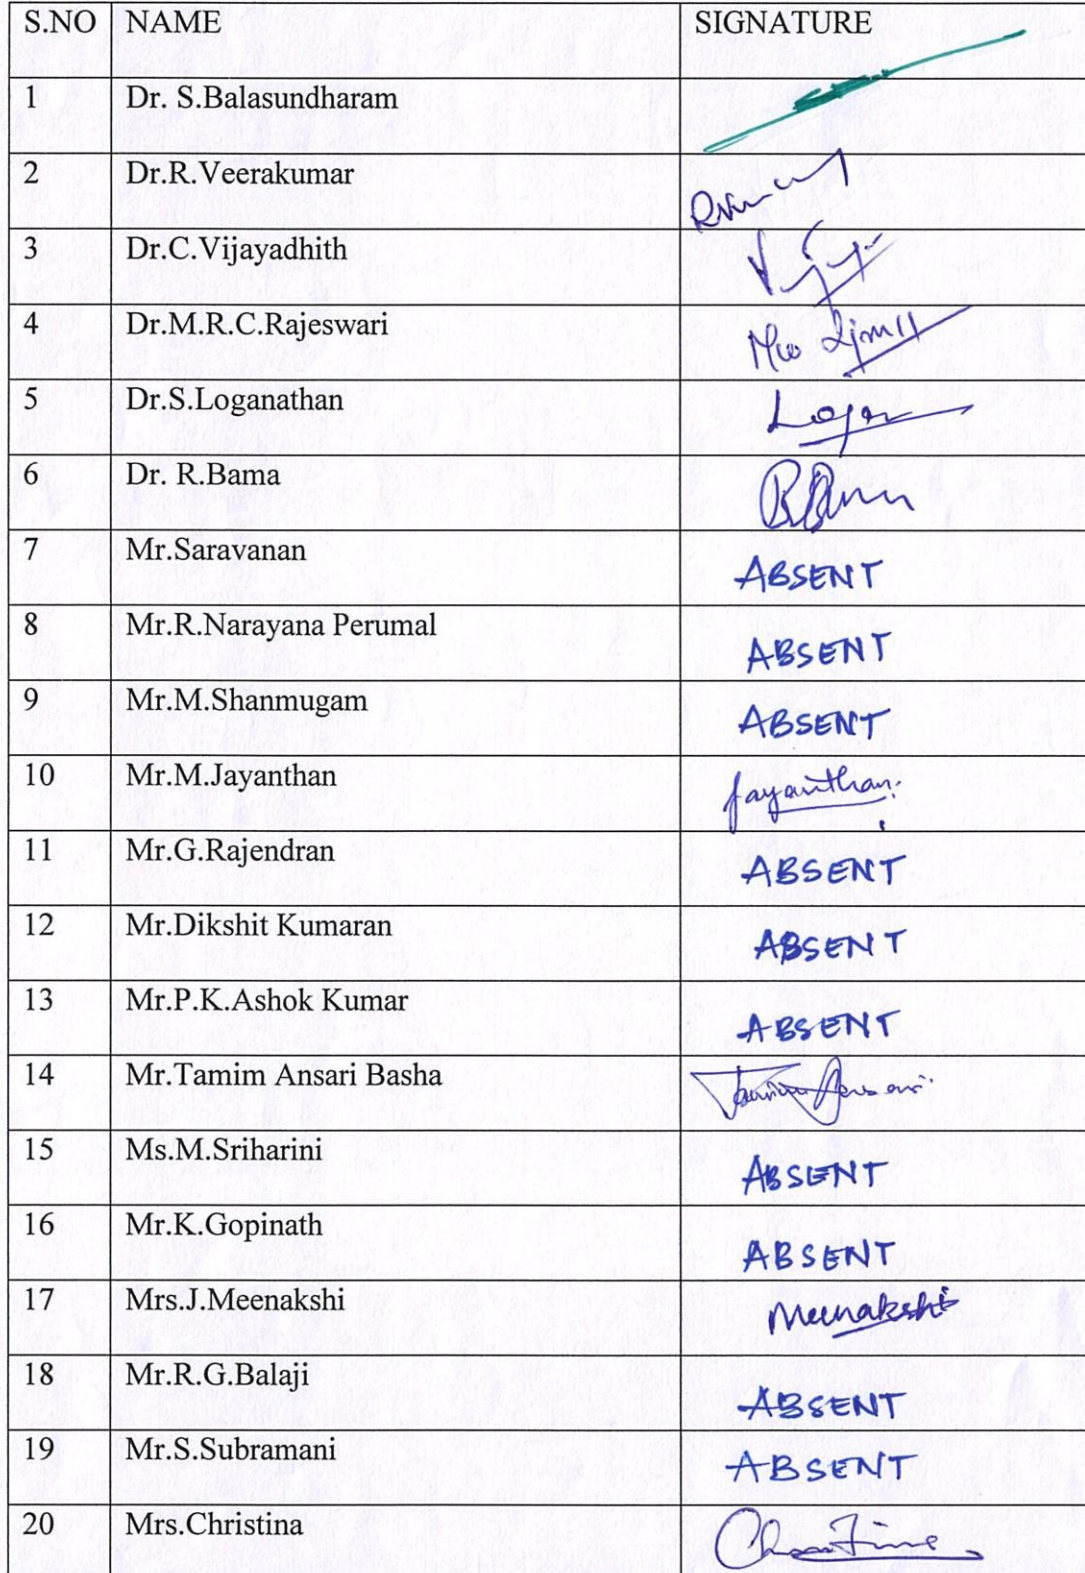 S.NO NAME SIGNATURE
1 Dr. S.Balasundharam
2 Dr.R.Veerakumar
3 Dr.C.Vijayadhith
4 Dr.M.R.C.Rajeswari
5 Dr.S.Loganathan
6 Dr. R.Bama
7 Mr.Saravanan ABSENT
8 Mr.R.Narayana Perumal ABSENT
9 Mr.M.Shanmugam ABSENT
10 Mr.M.Jayanthan Jayanthan.
11 Mr.G.Rajendran ABSENT
12 Mr.Dikshit Kumaran ABSENT
13 Mr.P.K.Ashok Kumar ABSENT
14 Mr.Tamim Ansari Basha
15 Ms.M.Sriharini ABSENT
16 Mr.K.Gopinath ABSENT
17 Mrs.J.Meenakshi Meenakshi
18 Mr.R.G.Balaji ABSENT
19 Mr.S.Subramani ABSENT
20 Mrs.Christina